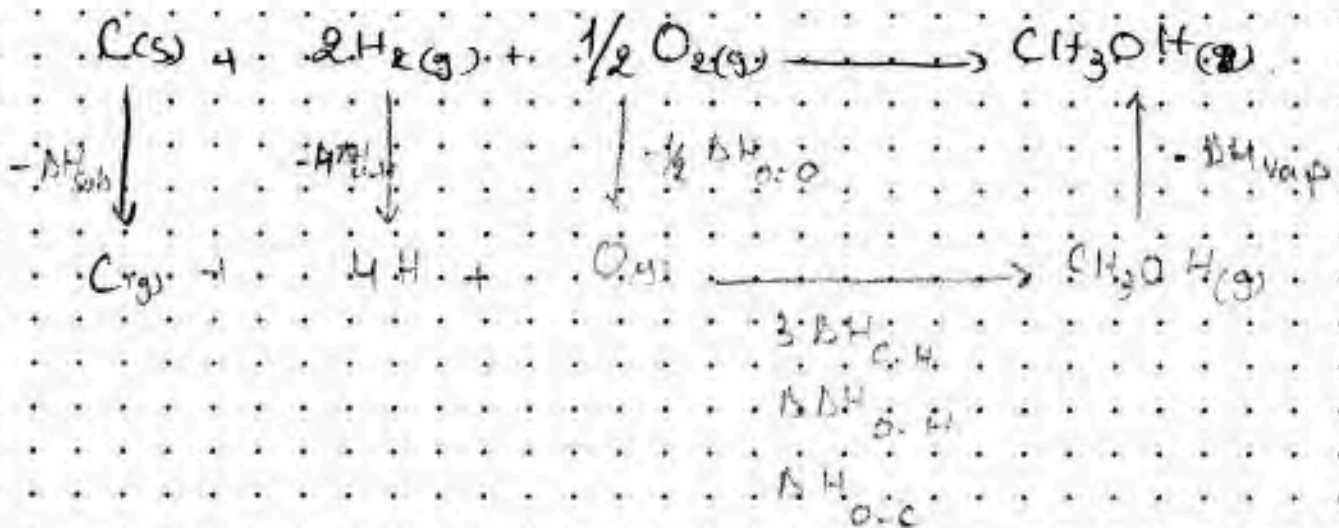 C(s) + 2H2(g) + 1/2 O2(g) → CH3OH(l)
-ΔHsub -1/2 ΔH O=O - ΔHvap
C(g) + 4H + O(g) → CH3OH(g)
3 ΔH C-H
ΔH O-H
ΔH O-C